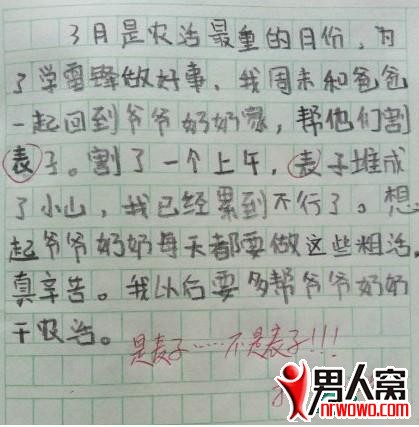 3月是农活最重的月份,为
了学雷锋做好事,我周末和爸爸
一起回到爷爷奶奶家,帮他们割
表子。割了一个上午,表子堆成
了小山,我已经累到不行了。想
起爷爷奶奶每天都要做这些粗活,
真辛苦。我以后要多帮爷爷奶奶
干农活。
是麦子……不是表子!!!
男人窝
nrwowo.com